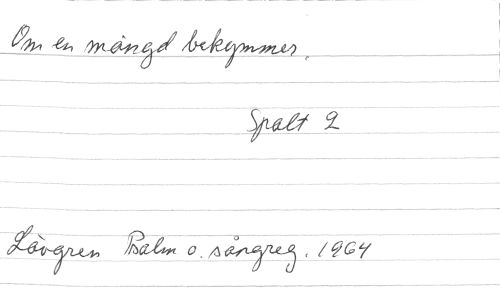 Om en mängd bekymmer.
Spalt 2
Lövgren Psalm o. sångreg. 1964